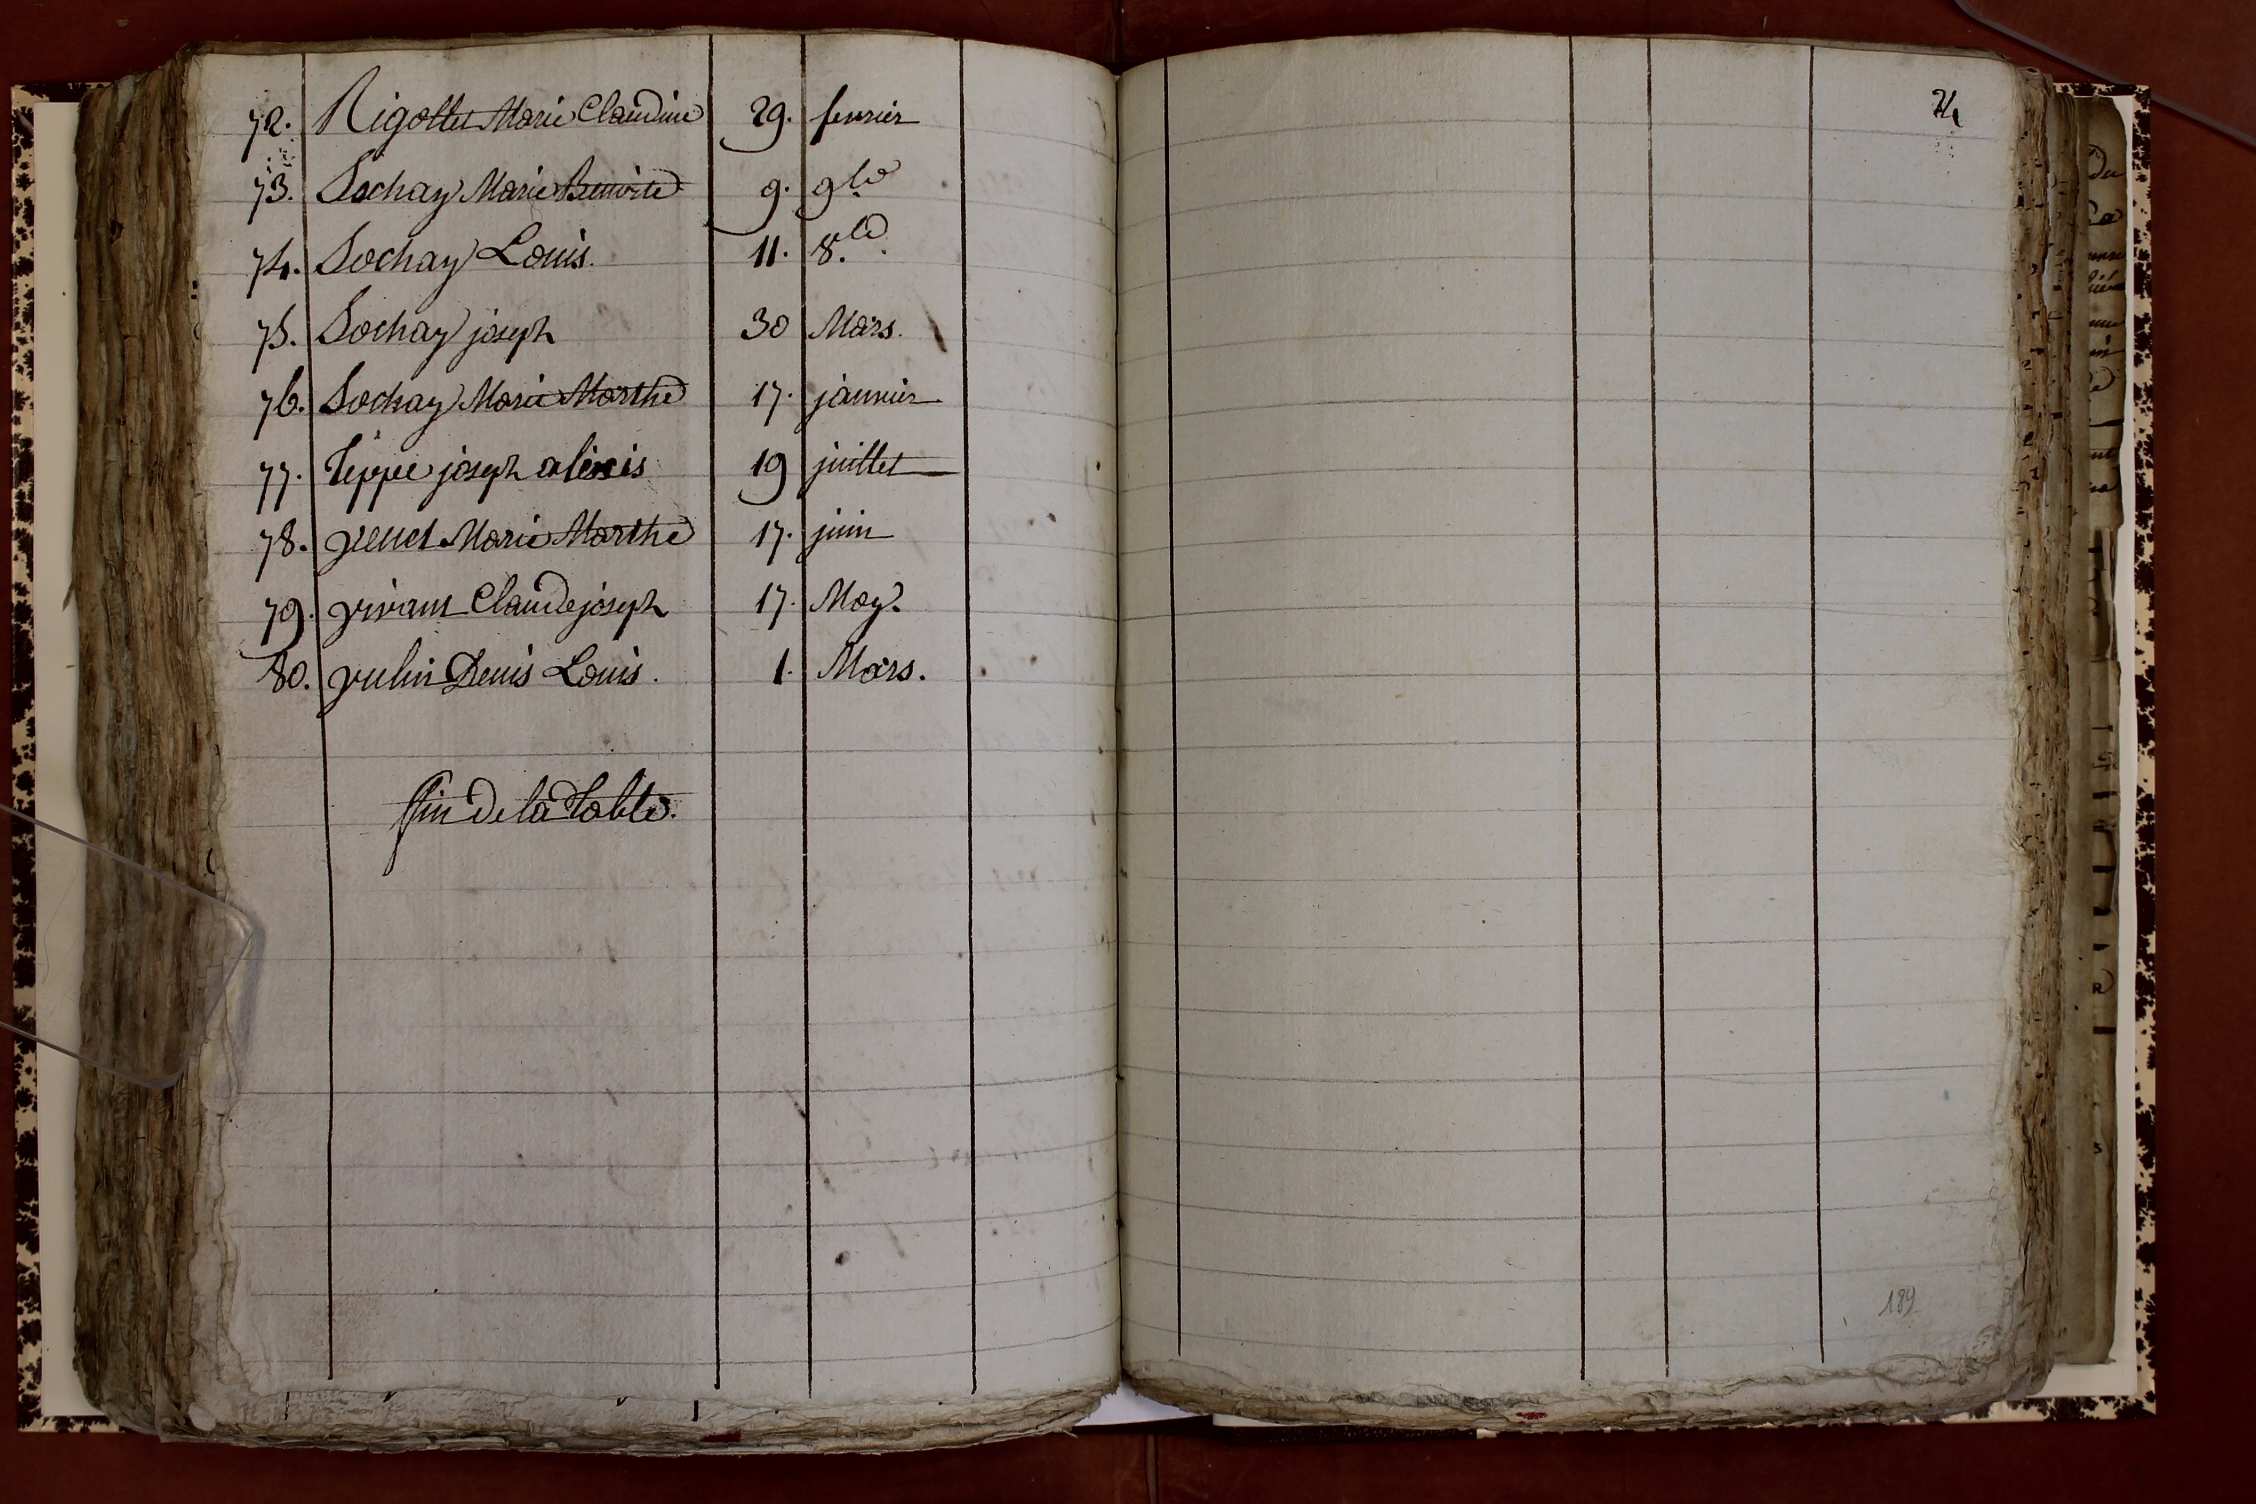 72. Rigollet Marie Claudine 29. fevrier
73. Sochay Marie Benoite 9. 9bre
74. Sochay Louis. 11. 8.bre
75. Sochay joseph 30 Mars.
76. Sochay Marie Marthe 17. janvier
77. Teppe joseph alexis 19 juillet
78. venet Marie Marthe 17. juin
79. vivant Claude joseph 17. May.
80. vulin Denis Louis. 1. Mars.
fin de la table.
189